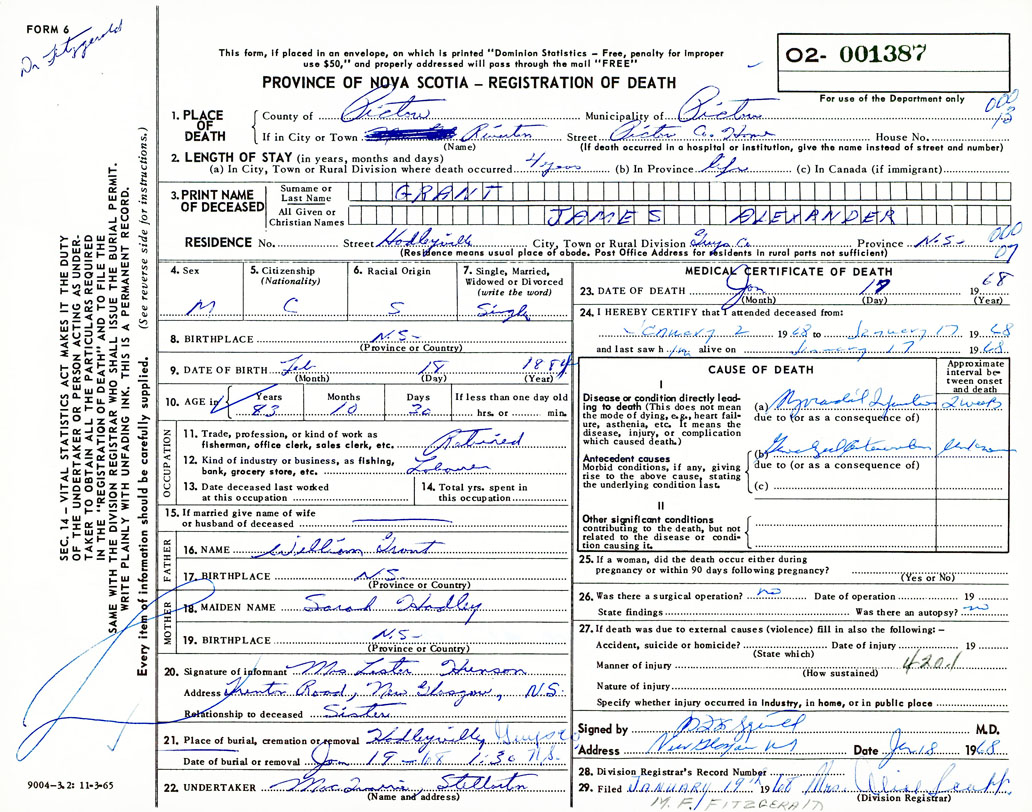 FORM 6
Dr Fitzgerald
This form, if placed in an envelope, on which is printed "Dominion Statistics – Free, penalty for improper
use $50," and properly addressed will pass through the mail "FREE"
PROVINCE OF NOVA SCOTIA – REGISTRATION OF DEATH
O2- 001387
For use of the Department only
1. PLACE OF DEATH
County of Pictou Municipality of Pictou
000
13
If in City or Town Riverton Street Pictou Co. Home House No.
(Name) (If death occurred in a hospital or institution, give the name instead of street and number)
2. LENGTH OF STAY (in years, months and days)
(a) In City, Town or Rural Division where death occurred 4 years (b) In Province life (c) In Canada (if immigrant)
3. PRINT NAME OF DECEASED
Surname or Last Name GRANT
All Given or Christian Names JAMES ALEXANDER
RESIDENCE No. Street Hadleyville City, Town or Rural Division Guys Co. Province N.S.
000
07
(Residence means usual place of abode. Post Office Address for residents in rural parts not sufficient)
4. Sex
M
5. Citizenship
(Nationality)
C
6. Racial Origin
S
7. Single, Married,
Widowed or Divorced
(write the word)
Single
8. BIRTHPLACE N.S.
(Province or Country)
9. DATE OF BIRTH Feb 18 1884
(Month) (Day) (Year)
10. AGE in
Years Months Days If less than one day old
83 10 30 hrs. or min.
OCCUPATION
11. Trade, profession, or kind of work as
fisherman, office clerk, sales clerk, etc. Retired
12. Kind of industry or business, as fishing,
bank, grocery store, etc. Labourer
13. Date deceased last worked
at this occupation
14. Total yrs. spent in
this occupation
15. If married give name of wife
or husband of deceased
FATHER
16. NAME William Grant
17. BIRTHPLACE N.S.
(Province or Country)
MOTHER
18. MAIDEN NAME Sarah Hadley
19. BIRTHPLACE N.S.
(Province or Country)
20. Signature of informant Mrs Lester Henson
Address Trenton Road, New Glasgow, N.S.
Relationship to deceased Sister
21. Place of burial, cremation or removal Hadleyville Guysco
Date of burial or removal Jan 19 - 68 1:30 N.S.
22. UNDERTAKER Stellarton
(Name and address)
MEDICAL CERTIFICATE OF DEATH
23. DATE OF DEATH Jan 17 1968
(Month) (Day) (Year)
24. I HEREBY CERTIFY that I attended deceased from:
January 2 1968 to January 17 1968
and last saw him alive on January 17 1968
CAUSE OF DEATH
Approximate
interval be-
tween onset
and death
I
Disease or condition directly lead-
ing to death (This does not mean
the mode of dying, e.g., heart fail-
ure, asthenia, etc. It means the
disease, injury, or complication
which caused death.)
(a) Myocardial Infarction 2 weeks
due to (or as a consequence of)
Antecedent causes
Morbid conditions, if any, giving
rise to the above cause, stating
the underlying condition last.
(b) unknown
due to (or as a consequence of)
(c)
II
Other significant conditions
contributing to the death, but not
related to the disease or condi-
tion causing it.
25. If a woman, did the death occur either during
pregnancy or within 90 days following pregnancy?
(Yes or No)
26. Was there a surgical operation? no Date of operation 19
State findings Was there an autopsy? no
27. If death was due to external causes (violence) fill in also the following: –
Accident, suicide or homicide? Date of injury 19
(State which)
Manner of injury 420.1
(How sustained)
Nature of injury
Specify whether injury occurred in industry, in home, or in public place
Signed by M.D.
Address New Glasgow NS Date Jan 18 1968
28. Division Registrar's Record Number
29. Filed JANUARY 19th 1968 Mrs.
(Division Registrar)
M.F. FITZGERALD
SEC. 14 – VITAL STATISTICS ACT MAKES IT THE DUTY
OF THE UNDERTAKER OR PERSON ACTING AS UNDER-
TAKER TO OBTAIN ALL THE PARTICULARS REQUIRED
IN THE "REGISTRATION OF DEATH" AND TO FILE THE
SAME WITH THE DIVISION REGISTRAR WHO SHALL ISSUE THE BURIAL PERMIT.
WRITE PLAINLY WITH UNFADING INK. THIS IS A PERMANENT RECORD.
Every item of information should be carefully supplied. (See reverse side for instructions.)
9004-3.2: 11-3-65